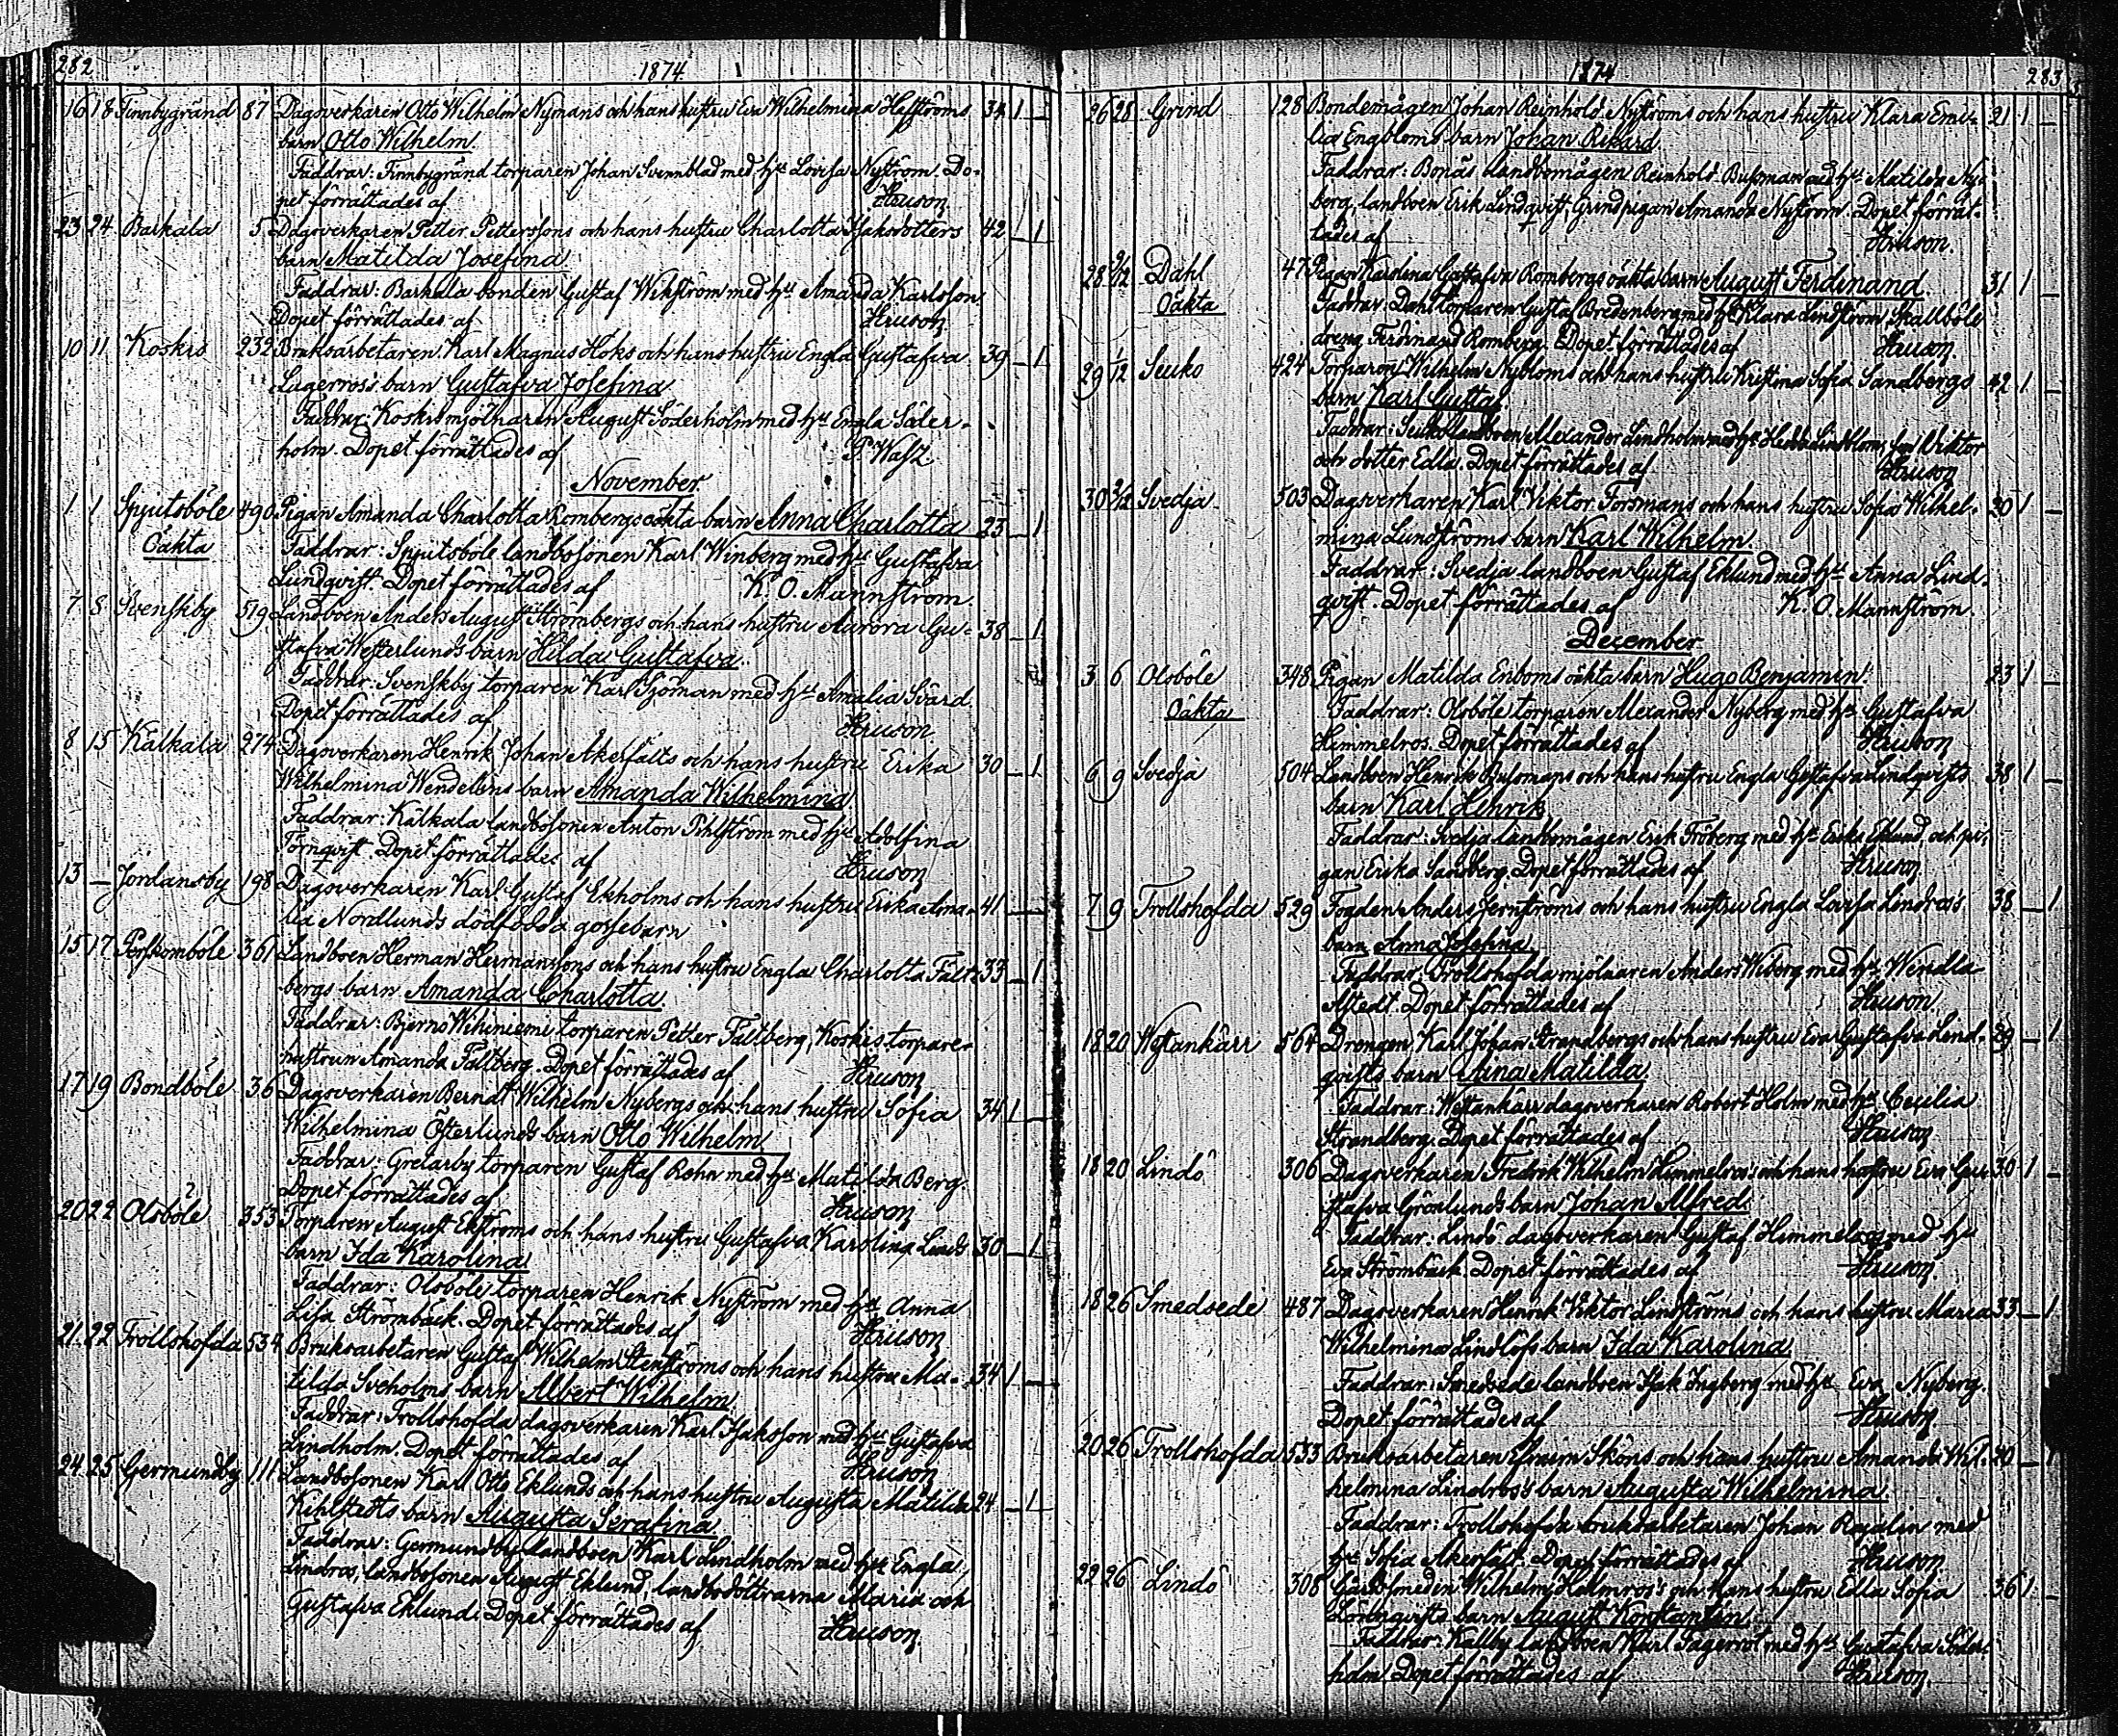 282
1874
16 18 Finnbygränd 87 Dagsverkaren Otto Wilhelm Nymans och hans hustru Eva Wilhelmina Heffströms 34 1 —
barn Otto Wilhelm.
Faddrar: Finnbygränd torparen Johan Svennblad med hu Lovisa Nyström. Do-
pet förrättades af Hruson
23 24 Barkala 5 Dagsverkaren Petter Petterssons och hans hustru Charlotta Isaksdotters 42 — 1
barn Matilda Josefina
Faddrar: Barkala bonden Gustaf Wikström med hu Amanda Karlsson
Dopet förrättades af Hruson
10 11 Koskis 232 Bruksarbetaren Karl Magnus Höks och hans hustru Engla Gustafva 39 — 1
Lagerros's barn Gustafva Josefina
Faddrar: Koskis mjölnaren August Söderholm med hu Engla Söder-
holm. Dopet förrättades af
November
1 1 Spjutsböle 490 Pigan Amanda Charlotta Rombergs oäkta barn Anna Charlotta 23 — 1
Oäkta Faddrar: Spjutsböle landbosonen Karl Winberg med hu Gustafva
Lundqvist. Dopet förrättades af K. O. Mannström.
7 8 Svenskby 519 Landboen Anders August Strömbergs och hans hustru Aurora Gu- 38 — 1
stafva Westerlunds barn Hilda Gustafva.
Faddrar: Svenskby torparen Karl Sjöman med hu Amalia Svärd
Dopet förrättades af Hruson
8 15 Kälkala 274 Dagsverkaren Henrik Johan Åkerfälts och hans hustru Erika 30 — 1
Wilhelmina Wendelins barn Amanda Wilhelmina
Faddrar: Kälkala landbosonen Anton Pihlström med hu Adolfina
Törnqvist. Dopet förrättades af Hruson
13 — Jordansby 198 Dagsverkaren Karl Gustaf Ekholms och hans hustru Erika Ama- 41 — —
lia Nordlunds dödfödda gossebarn
15 17 Perskomböle 361 Landboen Herman Hermanssons och hans hustru Engla Charlotta Fält- 33 — 1
bergs barn Amanda Charlotta
Faddrar: Bjernå Wihiniemi torparen Petter Fältberg, Koskis torpare-
hustrun Amanda Fältberg. Dopet förrättades af Hruson
17 19 Bondböle 36 Dagsverkaren Berndt Wilhelm Nybergs och hans hustru Sofia 34 1 —
Wilhelmina Österlunds barn Otto Wilhelm
Faddrar: Grelarby torparen Gustaf Rehn med hu Matilda Berg.
Dopet förrättades af Hruson
20 22 Olsböle 353 Torparen August Ekströms och hans hustru Gustafva Karolina Linds 30 — 1
barn Ida Karolina
Faddrar: Olsböle torparen Henrik Nyström med hu Anna
Lisa Strömbäck. Dopet förrättades af Hruson
21 22 Trollshofda 534 Bruksarbetaren Gustaf Wilhelm Stenströms och hans hustru Ma- 34 1 —
tilda Sveholms barn Albert Wilhelm
Faddrar: Trollshofda dagsverkaren Karl Isaksson med hu Gustafva
Lindholm. Dopet förrättades af Hruson
24 25 Germundby 111 Landbosonen Karl Otto Eklunds och hans hustru Augusta Matilda 24 — 1
Kihlstedts barn Augusta Serafina
Faddrar: Germundby landboen Karl Lindholm med hu Engla
Lindros, landbosonen August Eklund, landbodöttrarna Maria och
Gustafva Eklund. Dopet förrättades af Hruson
1874
283
26 28 Grind 128 Bondemågen Johan Reinhold Nyströms och hans hustru Klara Emi- 21 1 —
lia Engbloms barn Johan Rikard
Faddrar: Bonäs landbomågen Reinhold Bussman med hu Matilda Ny-
berg, landboen Erik Lindqvist, Grind pigan Amanda Nyström. Dopet förrät-
tades af Hruson.
28 2/12 Dahl 47 Pigan Karolina Gustafva Rombergs oäkta barn August Ferdinand 31 1 —
Oäkta Faddrar: Dahl torparen Gustaf Bredenberg med hu Klara Lindström, Skallböle
dreng Ferdinand Romberg. Dopet förrättades af Hruson
29 1/12 Seuko 424 Torparen Wilhelm Nybloms och hans hustru Kristina Sofia Sandbergs 42 1 —
barn Karl Gustaf
Faddrar: Seuko landboen Alexander Lindholm med hu Hedda Lindblom, son Viktor
och dotter Edla. Dopet förrättades af Hruson
30 2/12 Svedja 503 Dagsverkaren Karl Viktor Forsmans och hans hustru Sofia Wilhel- 30 1 —
mina Lundströms barn Karl Wilhelm
Faddrar: Svedja landboen Gustaf Eklund med hu Anna Lind-
qvist. Dopet förrättades af K. O. Mannström.
December
3 6 Olsböle 348 Pigan Matilda Enboms oäkta barn Hugo Benjamin. 23 1
Oäkta Faddrar: Olsböle torparen Alexander Nyberg med hu Gustafva
Himmelros. Dopet förrättades af Hruson
6 9 Svedja 504 Landboen Henrik Bussmans och hans hustru Engla Gustafva Lindqvists 38 1 —
barn Karl Henrik
Faddrar: Svedja landbomågen Erik Fröberg med hu Erika Eklund, och pi-
gan Erika Sandberg. Dopet förrättades af Hruson
7 9 Trollshofda 529 Fogden Anders Jernströms och hans hustru Engla Lovisa Lindros's 38 — 1
barn Anna Josefina
Faddrar: Trollshofda mjölnaren Anders Wiberg med hu Wendla
Alstedt. Dopet förrättades af Hruson
18 20 Westankärr 564 Drengen Karl Johan Strandbergs och hans hustru Eva Gustafva Lind- 29 — 1
qvists barn Anna Matilda
Faddrar: Westankärr dagsverkaren Robert Holm med hu Cecilia
Strandberg. Dopet förrättades af Hruson
18 20 Lindö 306 Dagsverkaren Fredrik Wilhelm Himmelros's och hans hustru Eva Gu- 30 1 —
stafva Grönlunds barn Johan Alfred
Faddrar: Lindö dagsverkaren Gustaf Himmelros med hu
Eva Strömbäck. Dopet förrättades af Hruson.
18 26 Smedsede 487 Dagsverkaren Henrik Viktor Lindströms och hans hustru Maria 33 — 1
Wilhelmina Lindlöfs barn Ida Karolina
Faddrar: Smedsede landboen Isak Ingberg med hu Eva Nyberg.
Dopet förrättades af Hruson
20 26 Trollshofda 533 Bruksarbetaren Efraim Sköns och hans hustru Amanda Wil- 20 — 1
helmina Lindros's barn Augusta Wilhelmina
Faddrar: Trollshofda bruksarbetaren Johan Rajalin med
hu Sofia Åkerfält. Dopet förrättades af Hruson
22 26 Lindö 308 Gårdssmeden Wilhelm Holmros's och hans hustru Edla Sofia 36 1 —
Lörnqvists barn August Konstantin
Faddrar: Källby landboen Karl Fagerrot med hu Gustafva Söder-
holm. Dopet förrättades af Hruson